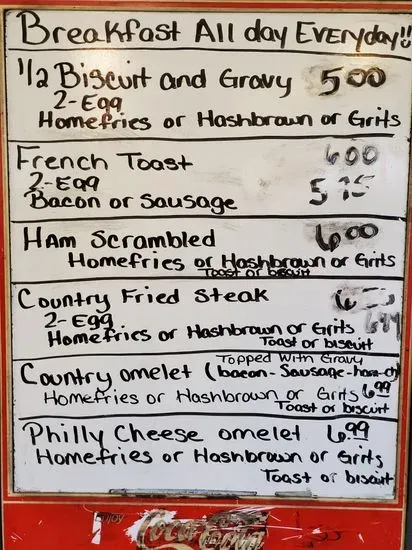 Breakfast All day Everyday!!
1/2 Biscuit and Gravy 500
2-Egg
Homefries or Hashbrown or Grits
French Toast 600
2-Egg
Bacon or Sausage
Ham Scrambled 600
Homefries or Hashbrown or Grits
Toast or biscuit
Country Fried Steak
2-Egg
Homefries or Hashbrown or Grits
Toast or biscuit
Topped With Gravy
Country omelet (bacon-Sausage-ham-ch
Homefries or Hashbrown or Grits 6.99
Toast or biscuit
Philly Cheese omelet 6.99
Homefries or Hashbrown or Grits
Toast or biscuit
Enjoy
Coca-Cola